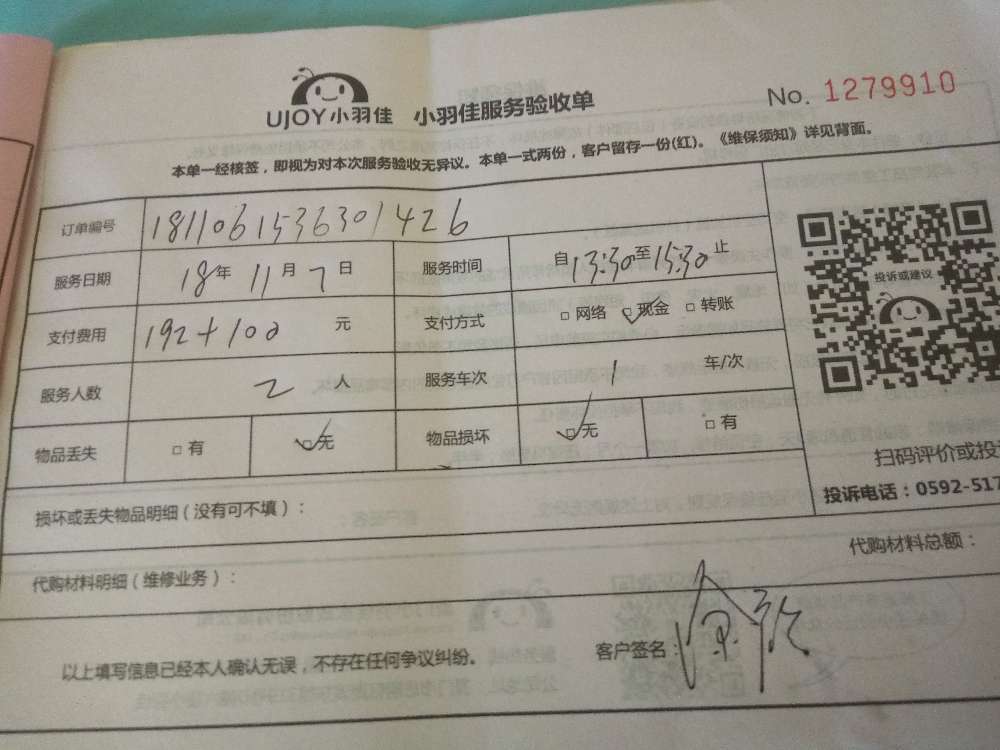 UJOY小羽佳 小羽佳服务验收单 No. 1279910
本单一经核签，即视为对本次服务验收无异议。本单一式两份，客户留存一份(红)。《维保须知》详见背面。
订单编号 1811061536301426
服务日期 18年 11月 7日 服务时间 自13:30至15:30止
支付费用 192+100 元 支付方式 □网络 ☑现金 □转账
服务人数 2 人 服务车次 1 车/次
物品丢失 □有 ☑无 物品损坏 ☑无 □有
投诉或建议
扫码评价或投
投诉电话：0592-517
损坏或丢失物品明细（没有可不填）：
代购材料明细（维修业务）： 代购材料总额：
以上填写信息已经本人确认无误，不存在任何争议纠纷。 客户签名：